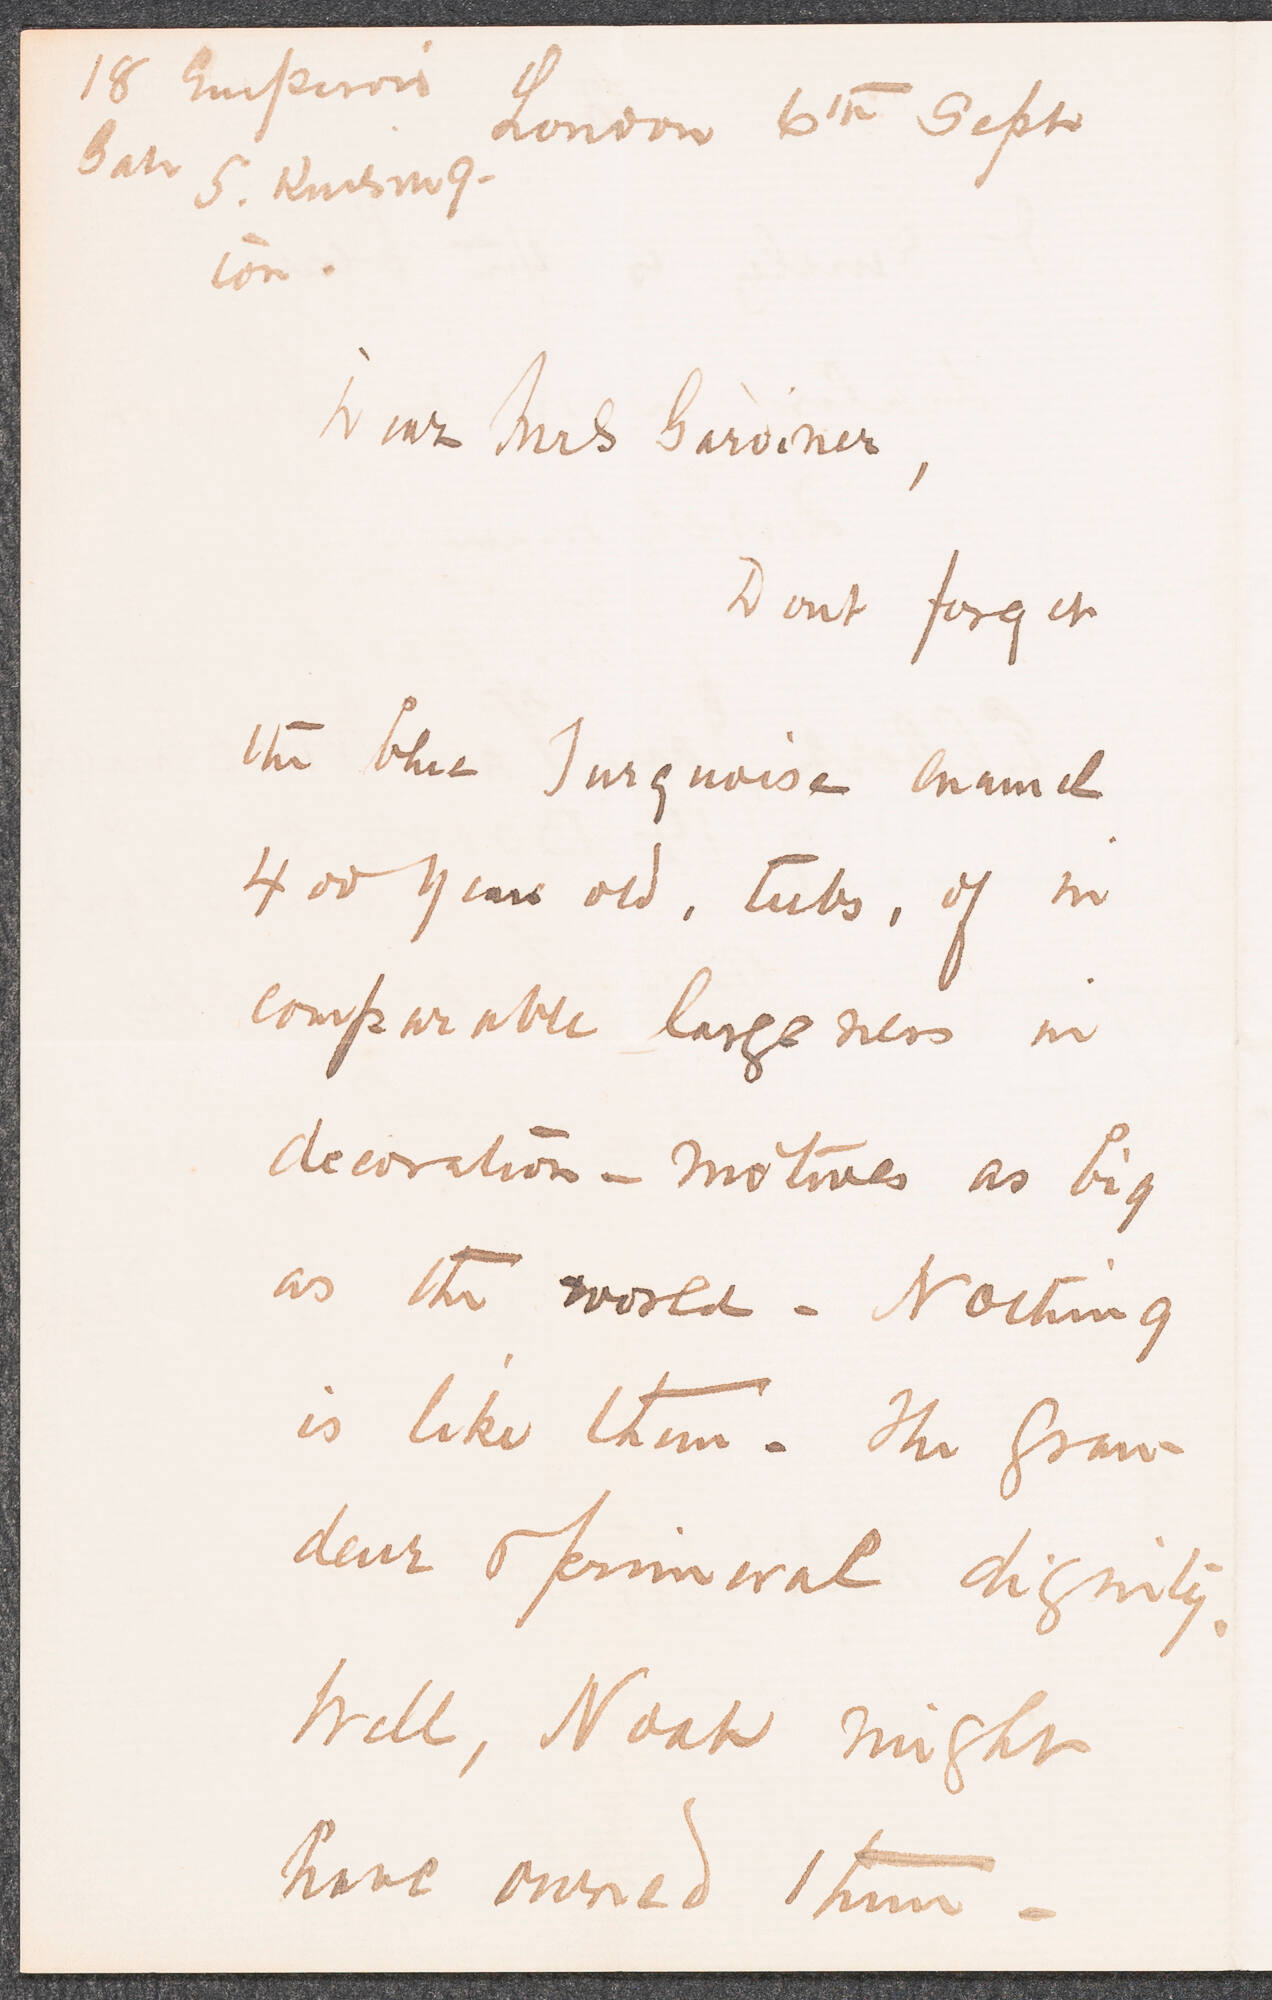 18 Emperois
Gate S. Kensing-
ton.
London 6th Sept
Dear Mrs Gardiner,
Dont forget
the blue Turquoise enamel
400 years old, tubs, of in
comparable largeness in
decoration - motives as big
as the world - Nothing
is like them - The gran-
deur of primeval dignity.
Well, Noah might
have owned them -